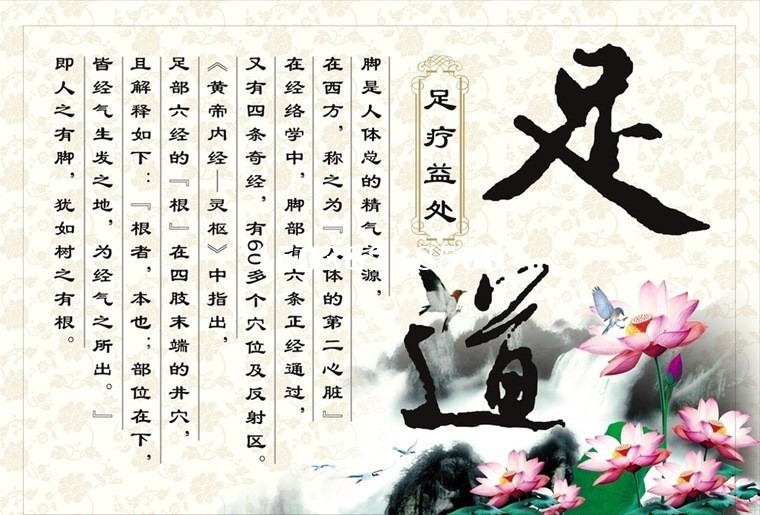 足道
足疗益处
脚是人体总的精气之源，
在西方，称之为『人体的第二心脏』
在经络学中，脚部有六条正经通过，
又有四条奇经，有60多个穴位及反射区。
《黄帝内经—灵枢》中指出，
足部六经的『根』在四肢末端的井穴，
且解释如下：『根者，本也；部位在下，
皆经气生发之地，为经气之所出。』
即人之有脚，犹如树之有根。